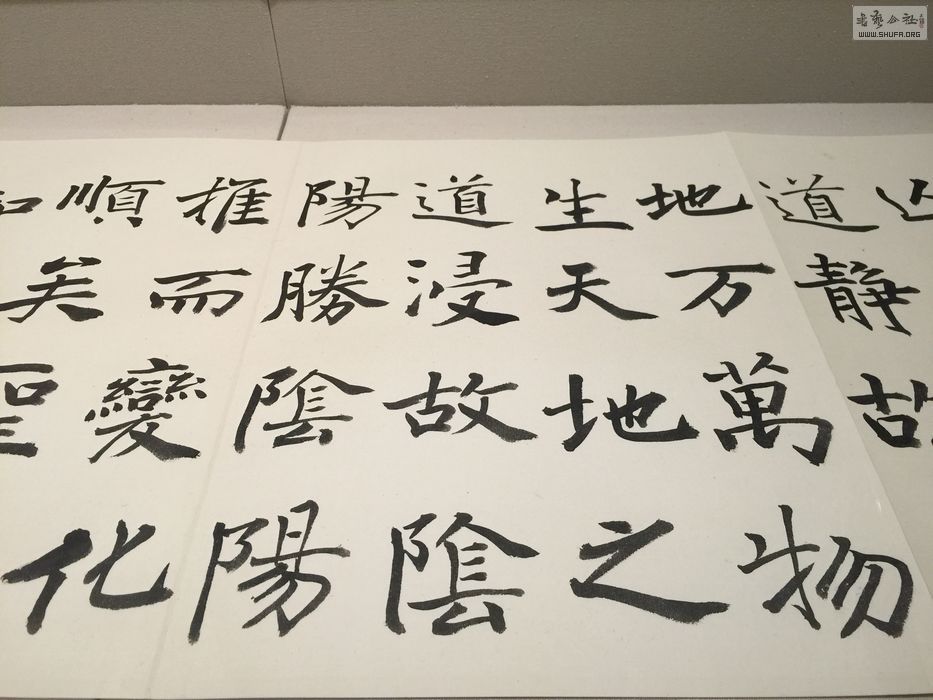 道靜故
地万萬物
生天地之
道浸故陰
陽勝陰陽
推而變化
順矣聖
書藝公社
WWW.SHUFA.ORG